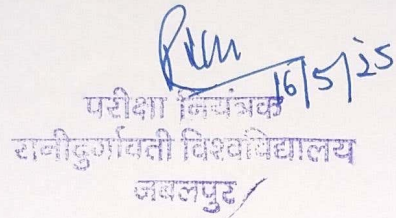 16/5/25
परीक्षा नियंत्रक
रानीदुर्गावती विश्वविद्यालय
जबलपुर